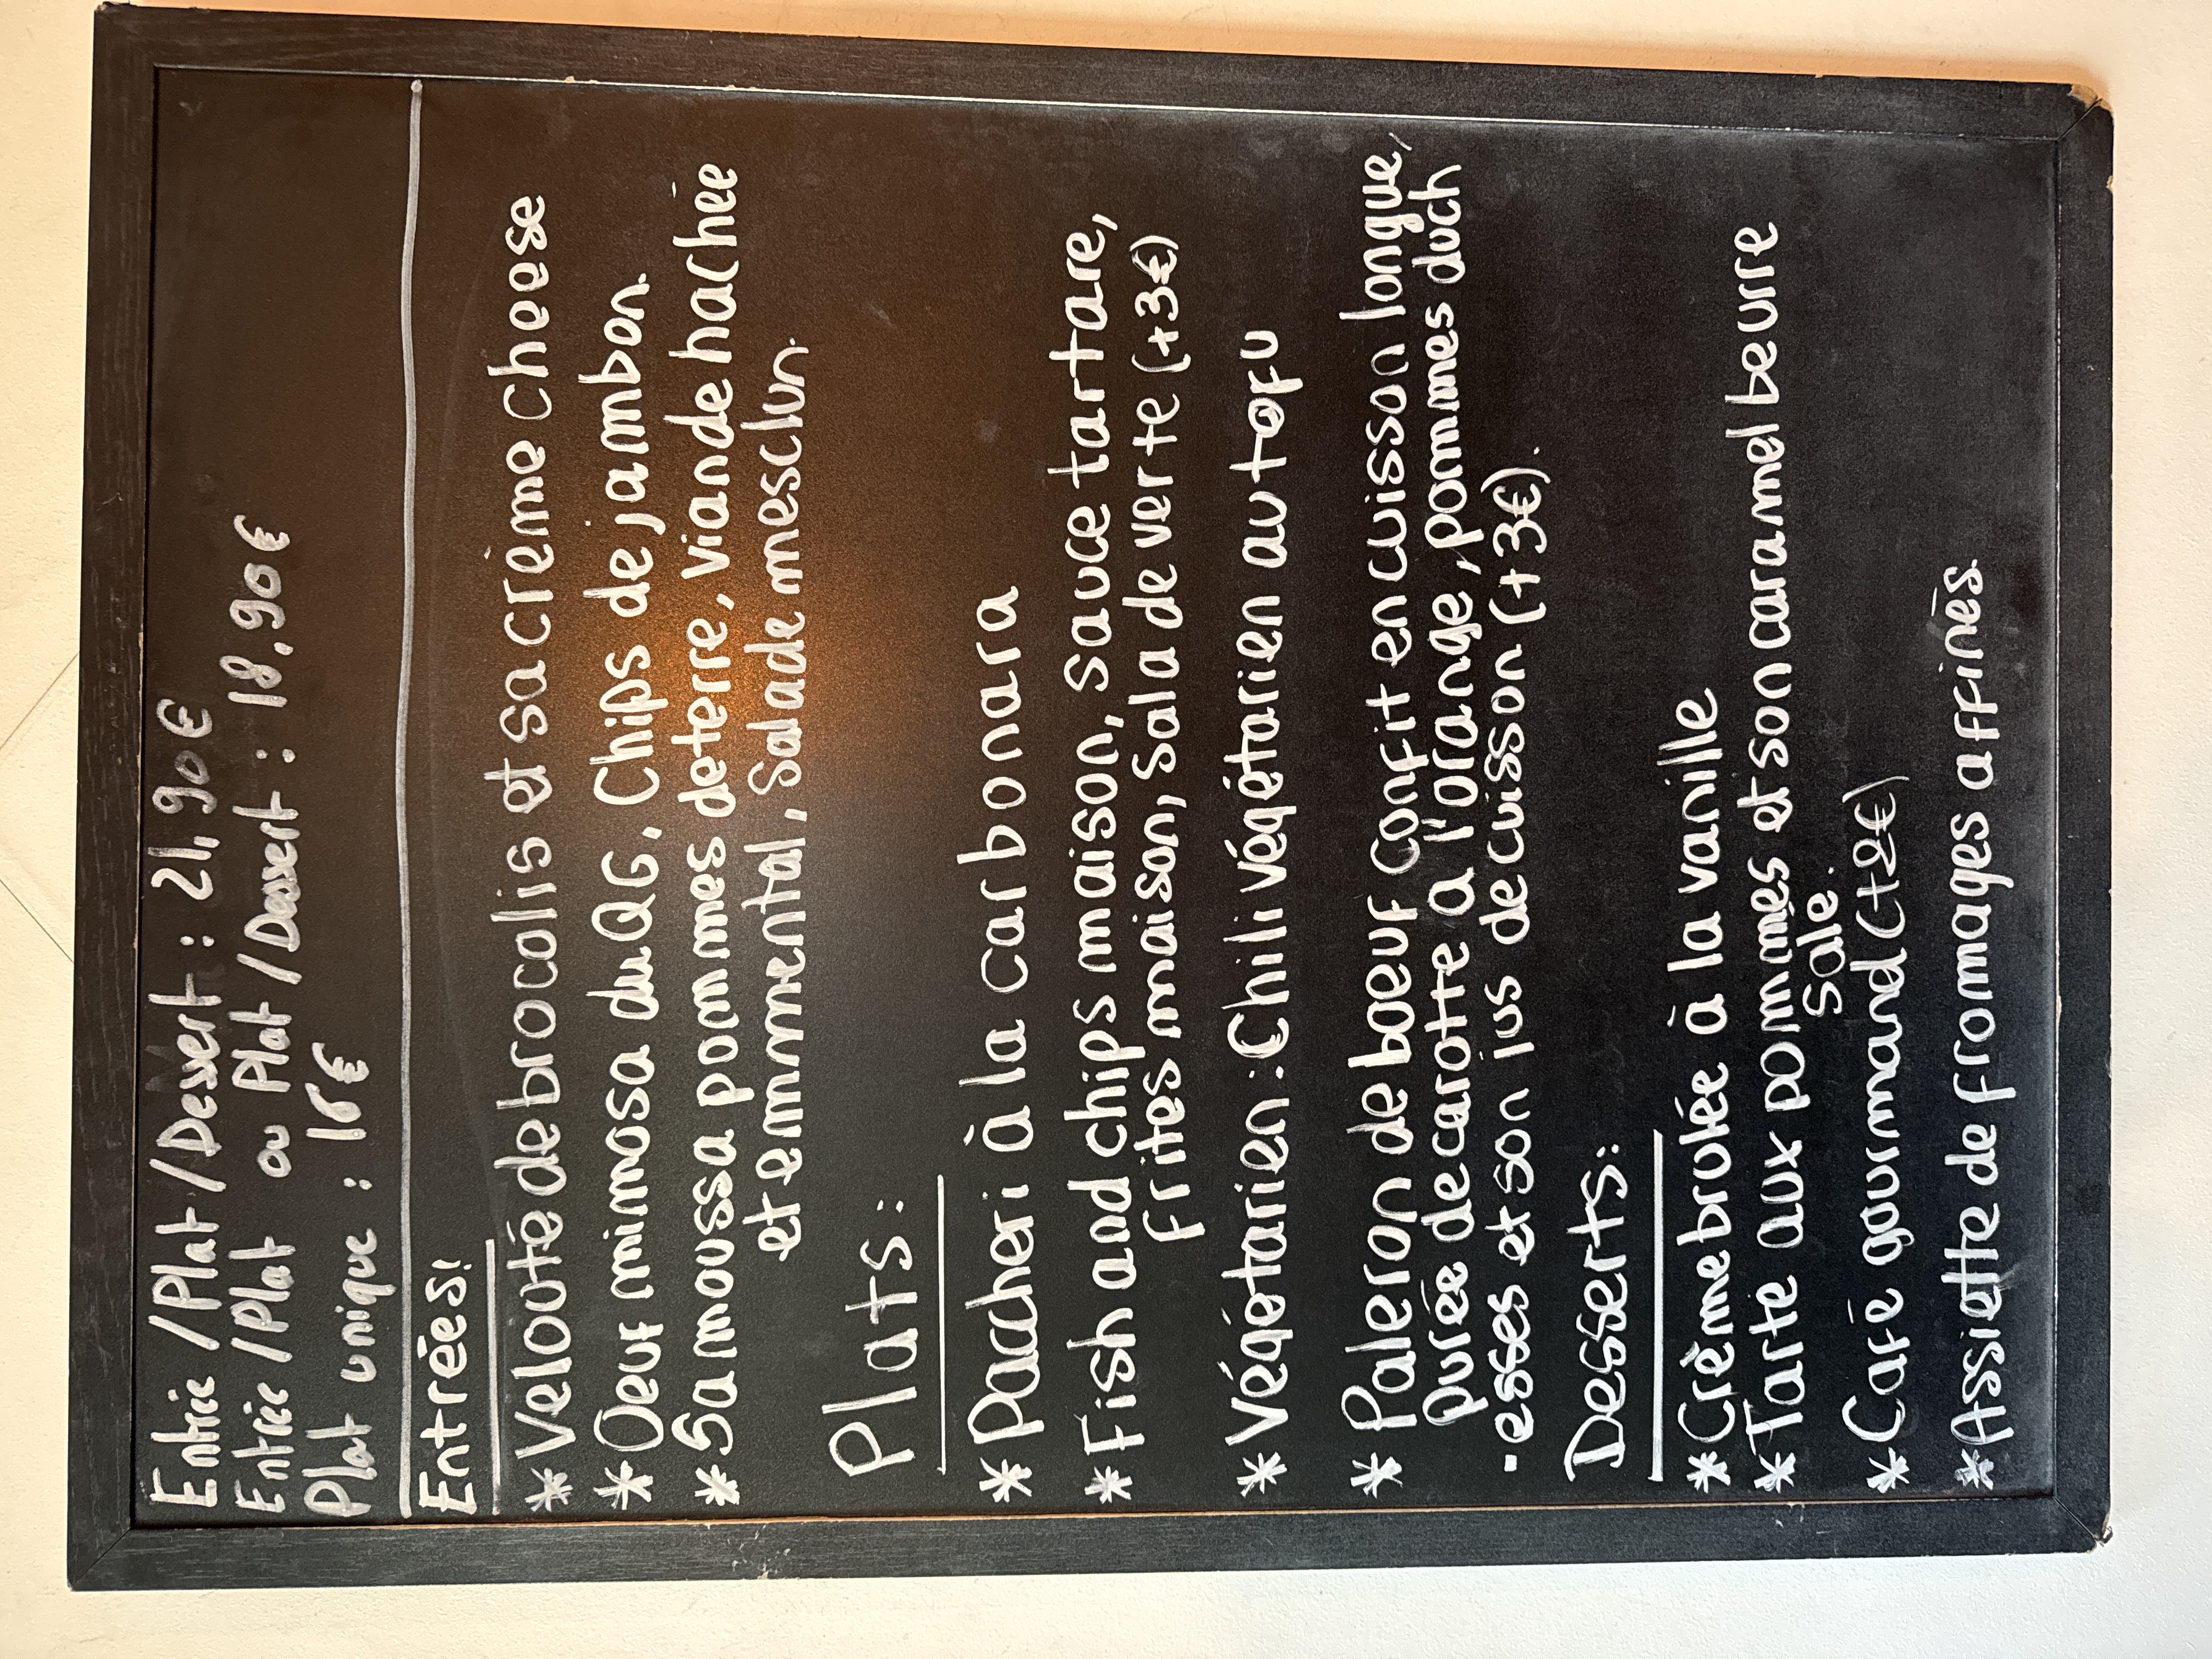 Entrée / Plat / Dessert : 21,90€
Entrée / Plat ou Plat / Dessert : 18,90€
Plat unique : 16€
Entrées:
* Velouté de brocolis et sa crème cheese
* Oeuf mimosa du QG, Chips de jambon.
* Samoussa pommes de terre, viande hachée
et emmental, Salade mesclun.
Plats:
* Paccheri à la carbonara
* Fish and chips maison, sauce tartare,
frites maison, Salade verte (+3€)
* Végétarien : Chili végétarien au tofu
* Paleron de boeuf Confit en cuisson longue,
purée de carotte à l'orange, pommes duch
-esses et son jus de cuisson (+3€).
Desserts:
* Crème brulée à la vanille
* Tarte aux pommes et son caramel beurre
Salé.
* Café gourmand (+2€)
* Assiette de fromages affinés.